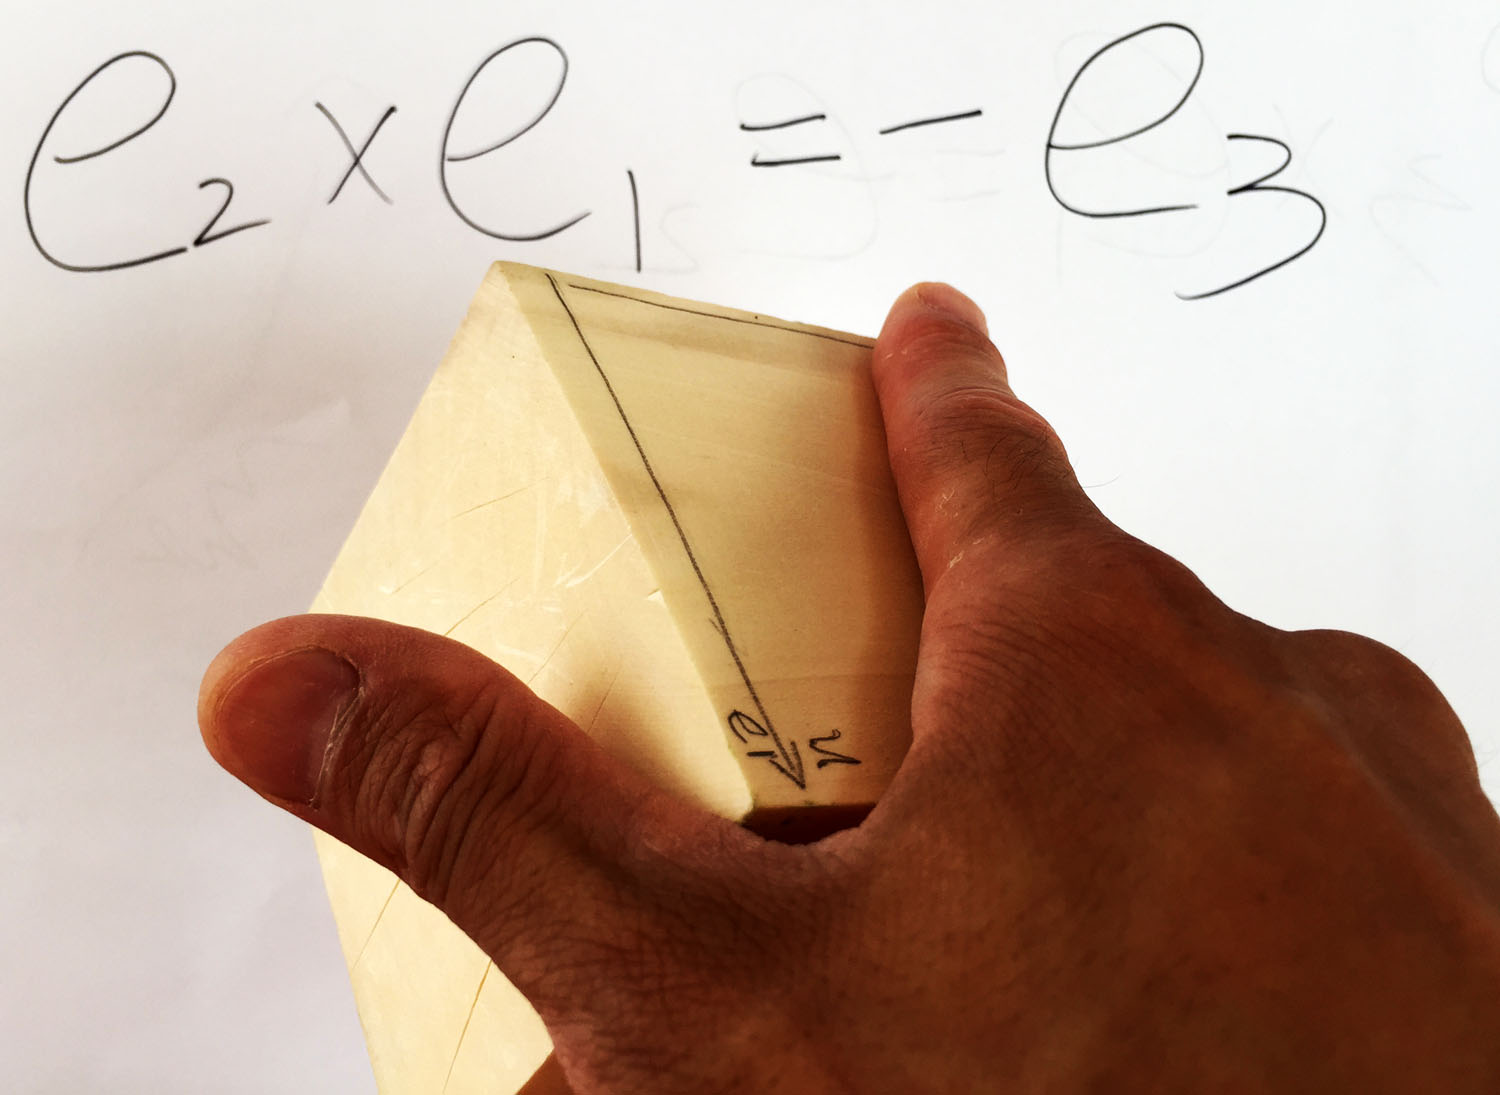 e₂ × e₁ = - e₃
e₁